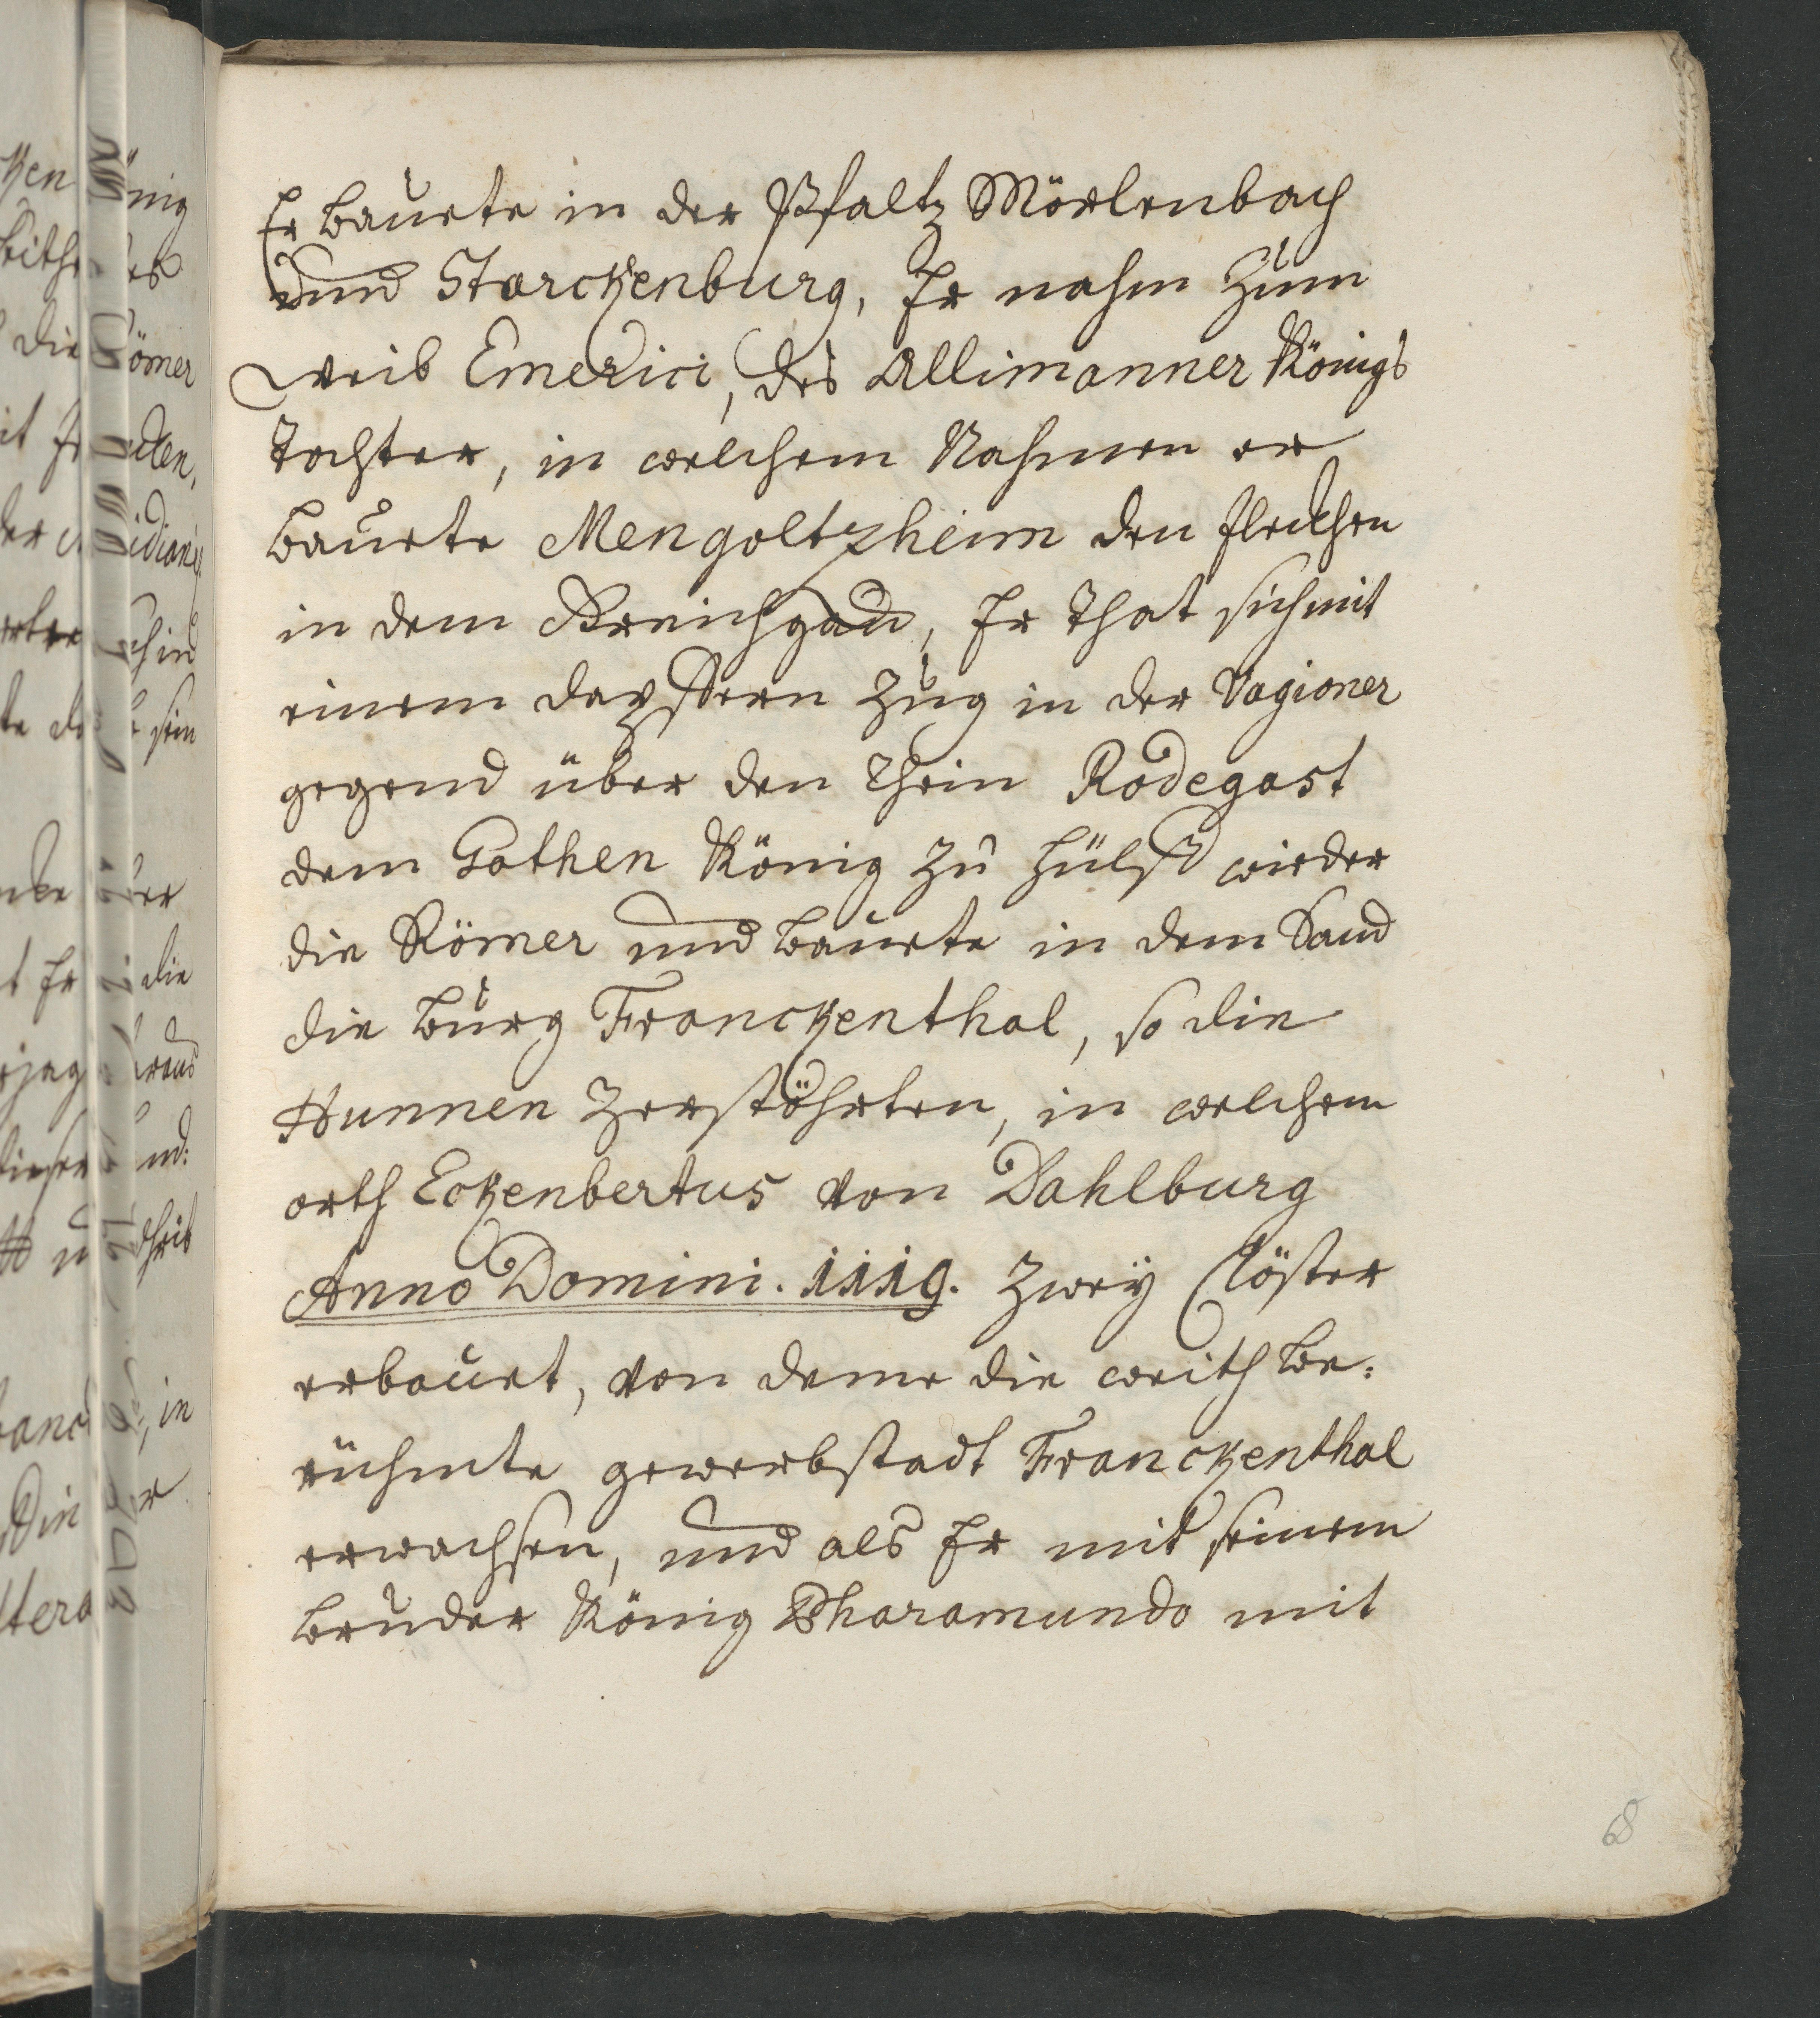 Er bauete in der Pfaltz Mörlenbach
und Starckenburg, Er nahm zum
weib Emerici, des Allimanner Königs
Tochter, in welchem Nahmen er
bauete Mengoltzheim den flecksen
in dem Breichgau, Er that sich mit
einem dapffern Zug in der Vagioner
gegend über den Rhein Rodegast
dem Gothen König zu hülff wieder
die Römer und bauete in dem Sand
die burg Franckenthal, so die
Hunnen zerstöhrten, in welchem
orth Eckenbertus von Dahlburg
Anno Domini. 1119. zwey Clöster
erbauet, von deme die weith be:
rühmte gewerbstadt Franckenthal
erwachsen, und als Er mit seinem
bruder König Pharamundo mit
68